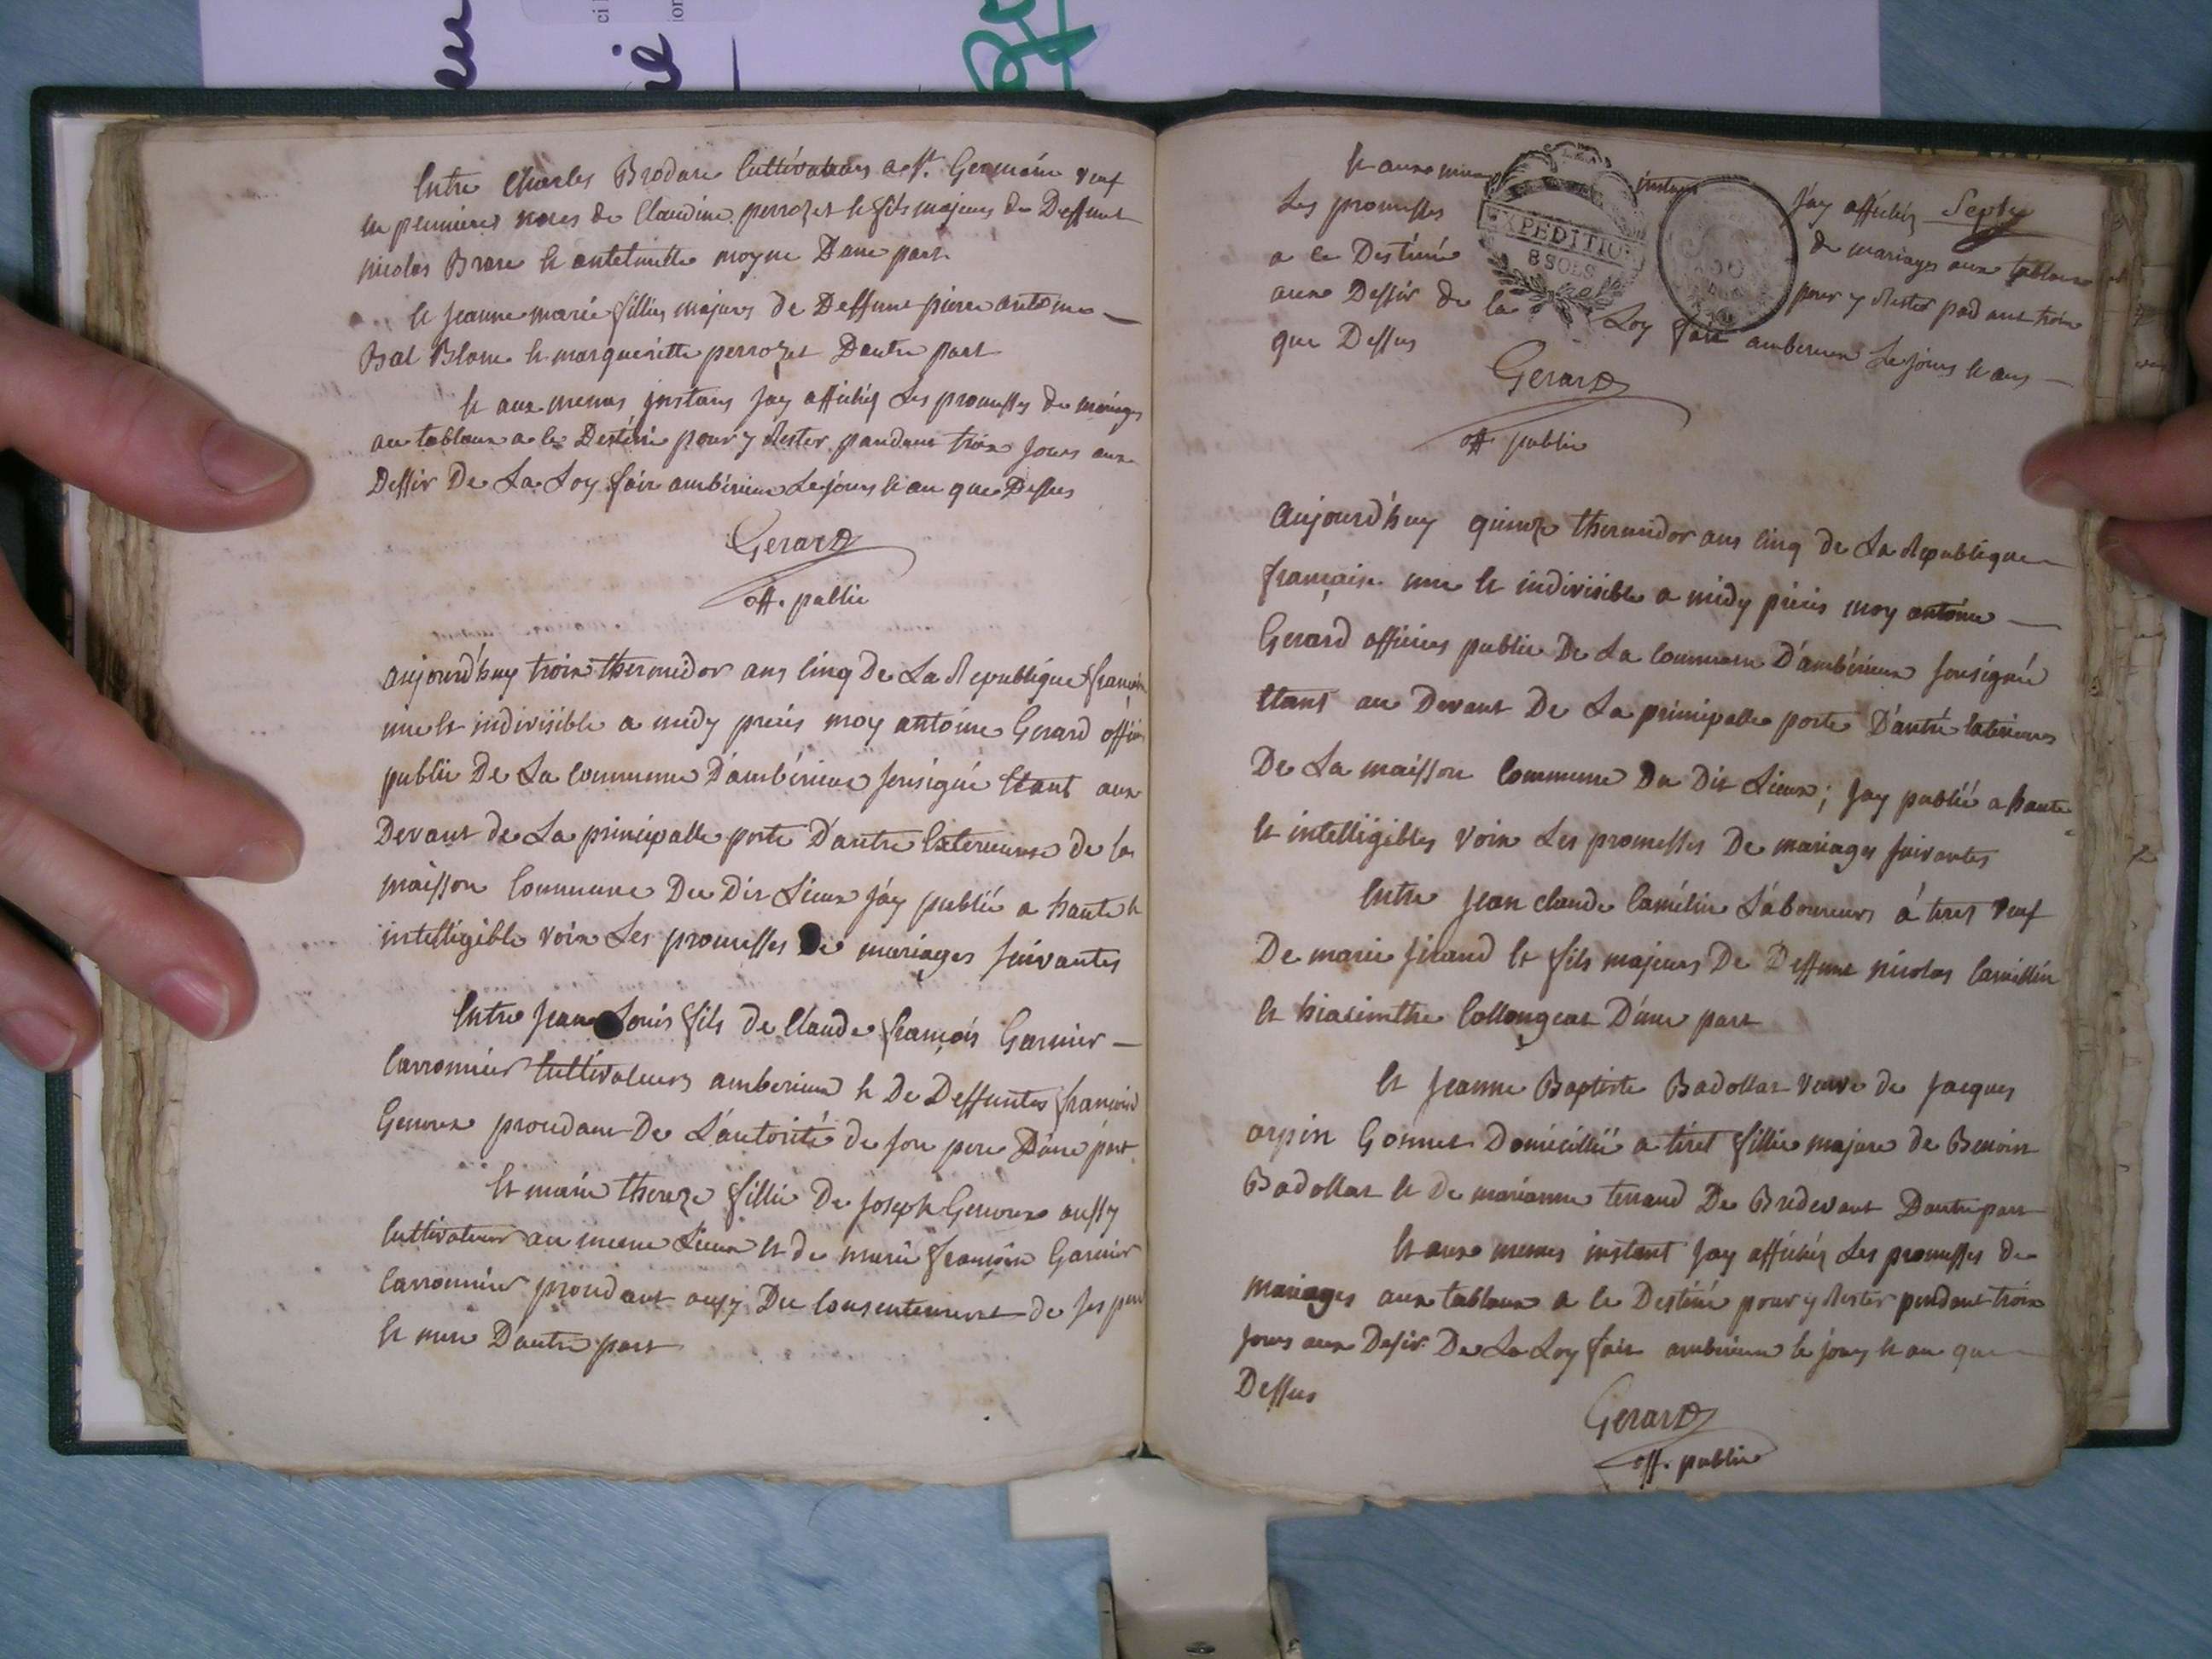 Entre Charles Brodare Cultivateurs a St. Germain veuf
en premieres noces de Claudine perrozet et fils majeurs de Deffunt
nicolas et antelmette moyne Dune part
et jeanne marie fillies majeurs de Deffunt pierre antoine
Bal Blanc et margueritte perrozet Dautre part
et aux memes instans Jay affichéz Les promesses de mariages
au tableaux a ce Destiné pour y Rester pandant trois Jours aux
Dessir De La Loy fair ambérieux Le jours et an que Dessus
Gerard
off. public
aujourd'huy troix thermidor ans Cinq De La Republique francaise
une et indivisible a midy precis moy antoine Gerard officier
public De La commune D'ambérieux sousigné Etant aux
Devant de La principalle porte D'antre Exterieure de la
maisson Commune Du Dit Lieux J'ay publié a haute et
intelligible voix Les promesses De mariages suivantes
Entre Jean Louis fils de Claude françois Garnier
Carronnier Cultivateurs amberieux et De Deffuntes francoise
Genoux procedant De L'autorité de son pere D'une part
et marie thereze fillie De Joseph Genoux aussy
Cultivateur au meme Lieux et de marie francoise Garnier
Carronnier procedant aussy Du Consentement de ses pere
et mere Dautre part
et aux memes instans J'ay affichéz
Les promesses de mariages aux tableaux
a ce Destiné pour y Rester pendant troix
aux Dessir de la Loy fait amberieux Le jours et ans
que Dessus
EXPEDITION
8 SOLS
Gerard
off. public
Aujourd'huy quinze thermidor ans Cinq De La Republique
française une et indivisible a midy précis moy antoine
Gerard officier public De La Commune D'ambérieux sousigné
Etant au Devant De La principalle porte D'antré Exterieure
De La maisson Commune Du Dit Lieux; Jay publié a haute
et intelligibles voix Les promesses De mariages suivantes
Entre Jean claude Camélin Laboureurs á tiret veuf
De marie et fils majeurs De Deffunt nicolas Camellin
et hiacinthe Collongeat D'une part
et Jeanne Baptiste Badollat veuve de Jacques
arpin Gonnet Domicilliée a tiret fillie majure de Benoit
Badollat et de marianne tenand De Bredevant Dautre part
et aux memes instant Jay affichéz Les promesses de
mariages aux tableaux a ce Destiné pour y Rester pendant troix
Jours aux Desir De La Loy fait ambérieux le jours et an que
Dessus
Gerard
off. public